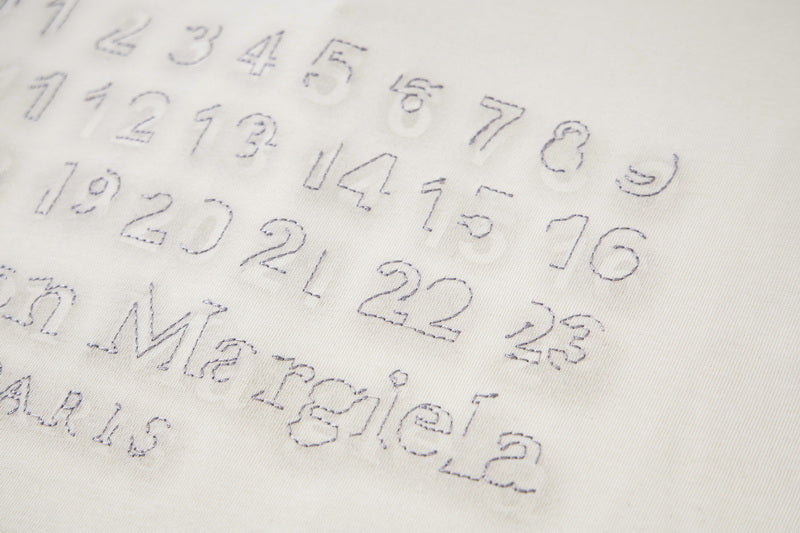 1 2 3 4 5 6 7 8 9
1 12 13 14 15 16
19 20 21 22 23
on Margiela
PARIS